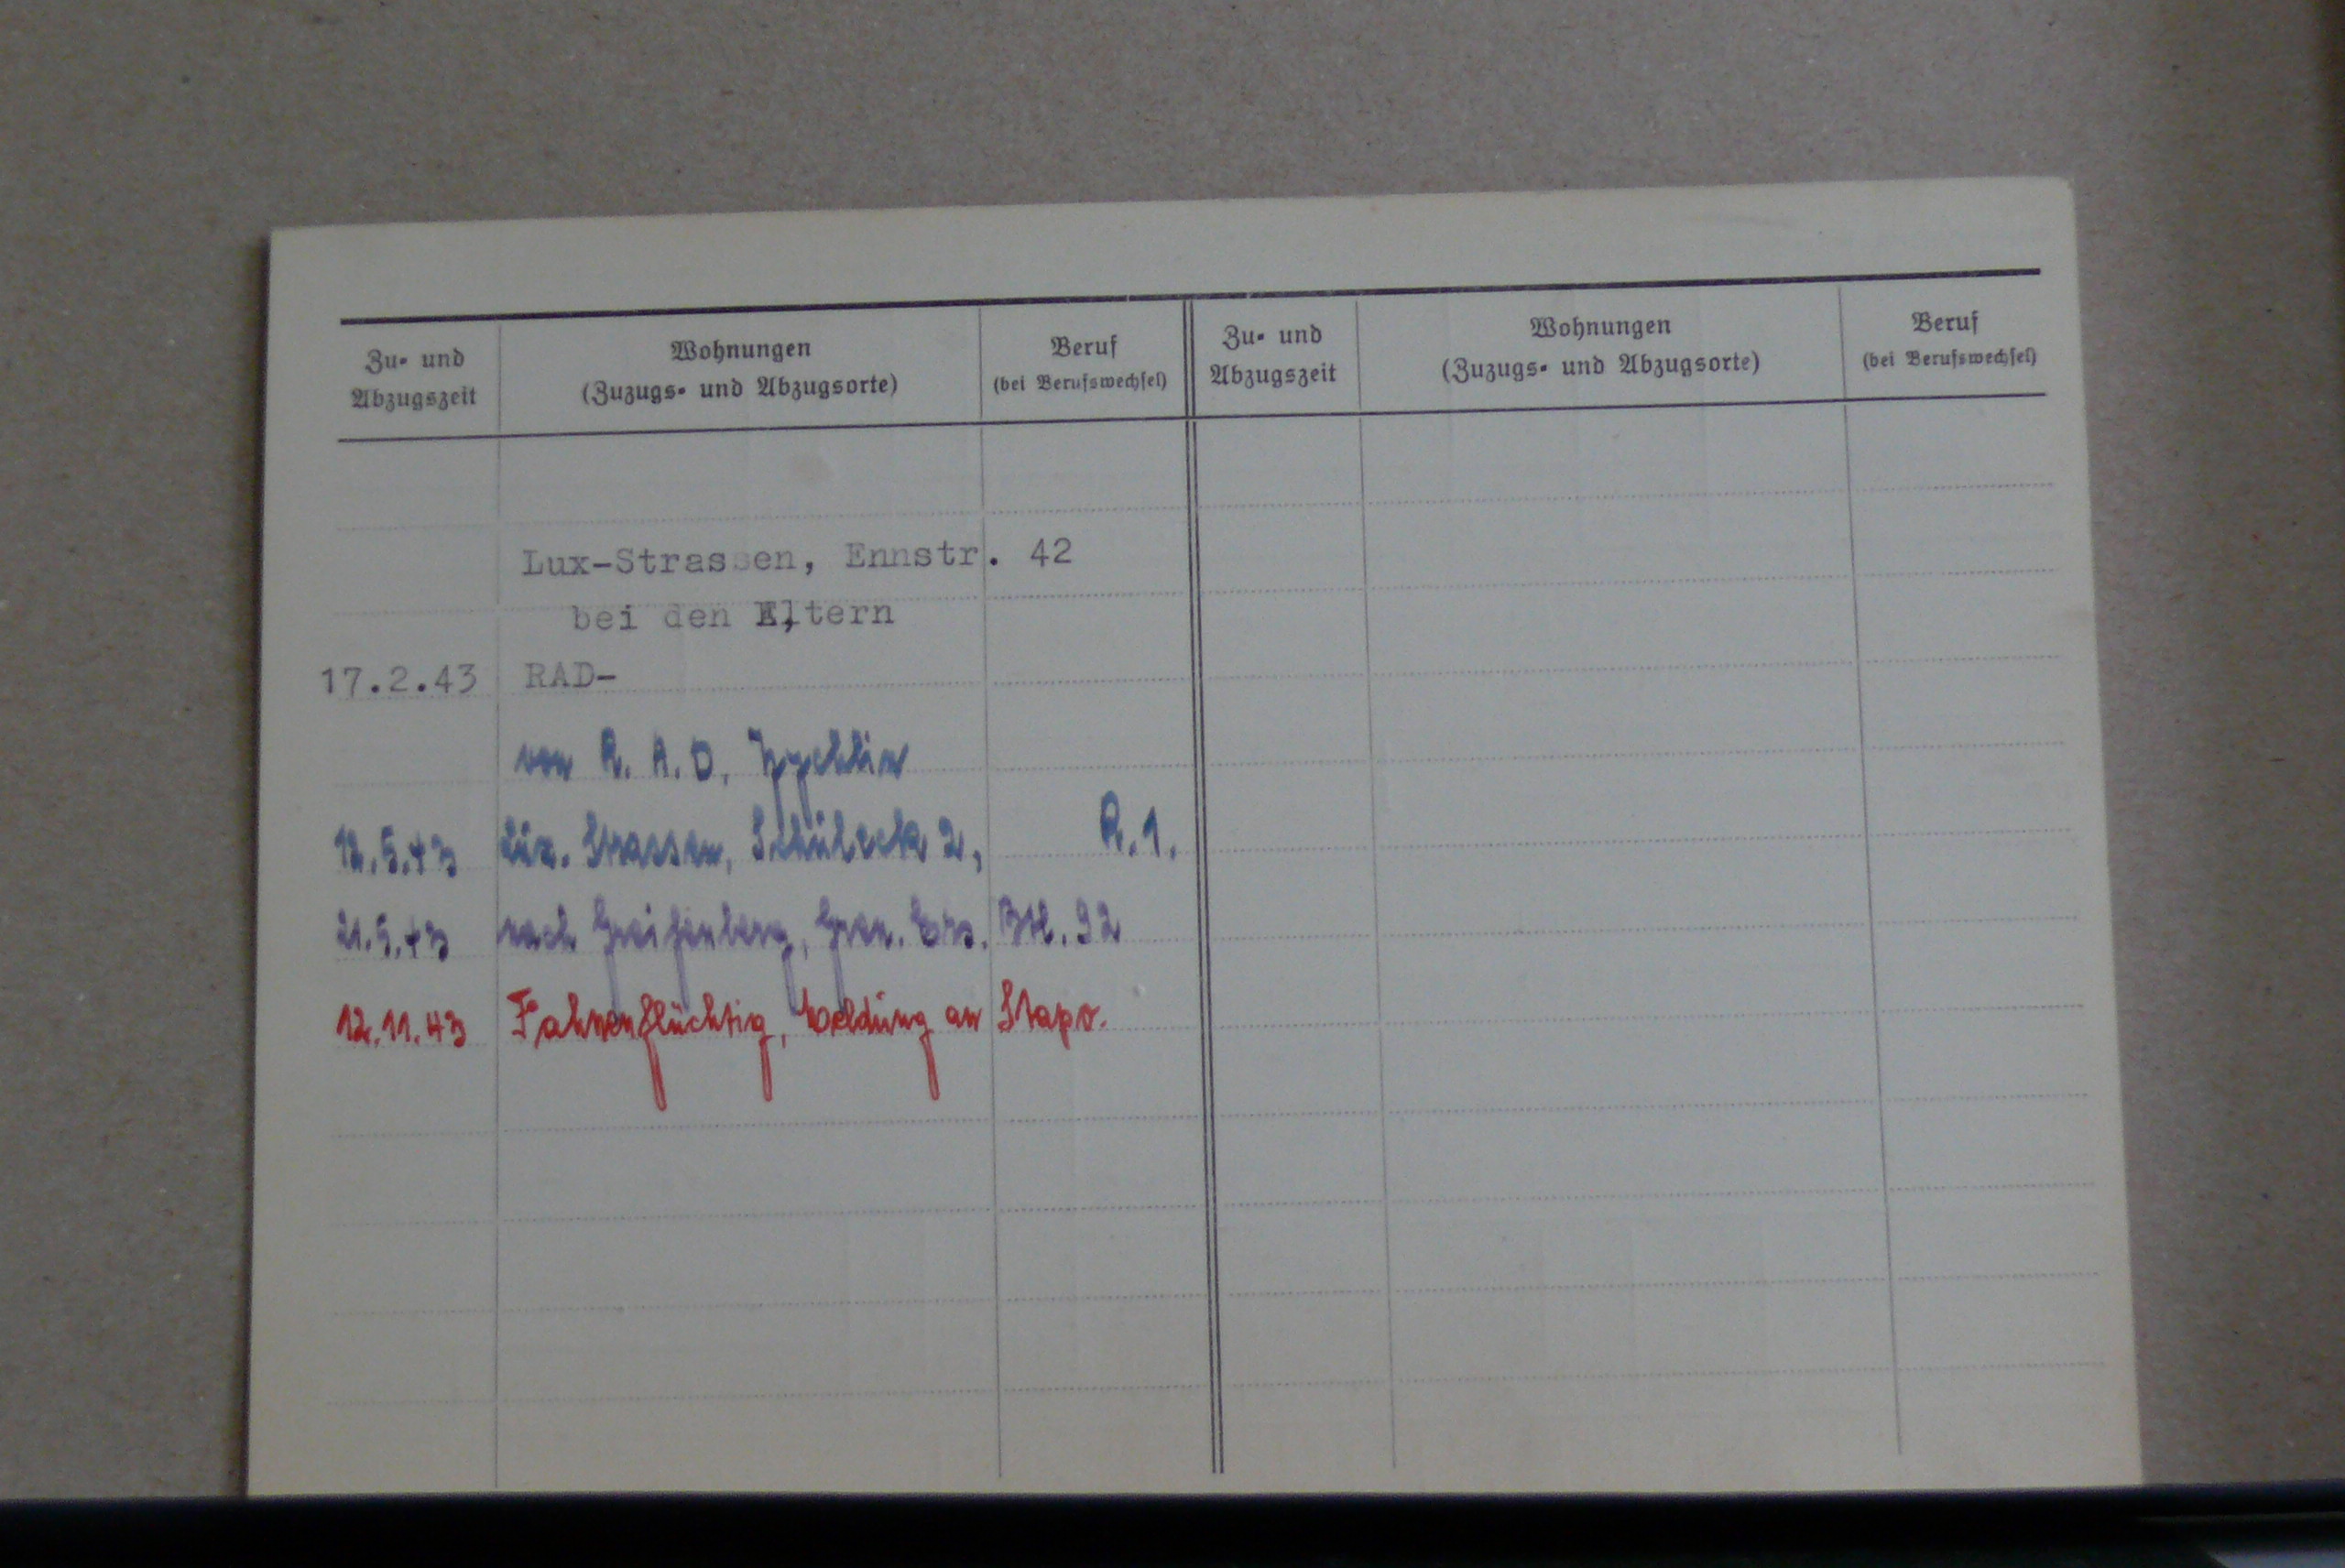 Zu- und Abzugszeit
Wohnungen (Zuzugs- und Abzugsorte)
Beruf (bei Berufswechsel)
Zu- und Abzugszeit
Wohnungen (Zuzugs- und Abzugsorte)
Beruf (bei Berufswechsel)
Lux-Strassen, Ennstr. 42
bei den Eltern
17.2.43 RAD-
von R. A. D. Zychlin
12.5.43 Lux. Strassen, 2, R. 1.
21.5.43 nach Greifenberg, Gren. Ers. Btl. 92
12.11.43 Fahnenflüchtig, Meldung an Stapo.